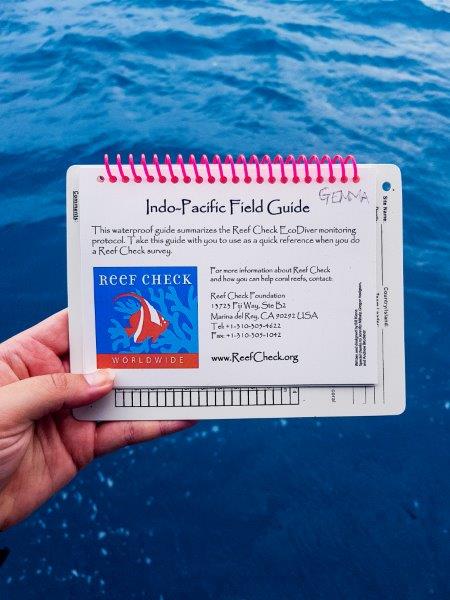 GEMMA
Indo-Pacific Field Guide
This waterproof guide summarizes the Reef Check EcoDiver monitoring
protocol. Take this guide with you to use as a quick reference when you do
a Reef Check survey.
REEF CHECK
WORLDWIDE
For more information about Reef Check
and how you can help coral reefs, contact:
Reef Check Foundation
13723 Fiji Way, Ste B2
Marina del Rey, CA 90292 USA
Tel: +1-310-305-4622
Fax: +1-310-305-1042
www.ReefCheck.org
Comments:
Site Name:
Country/Island: